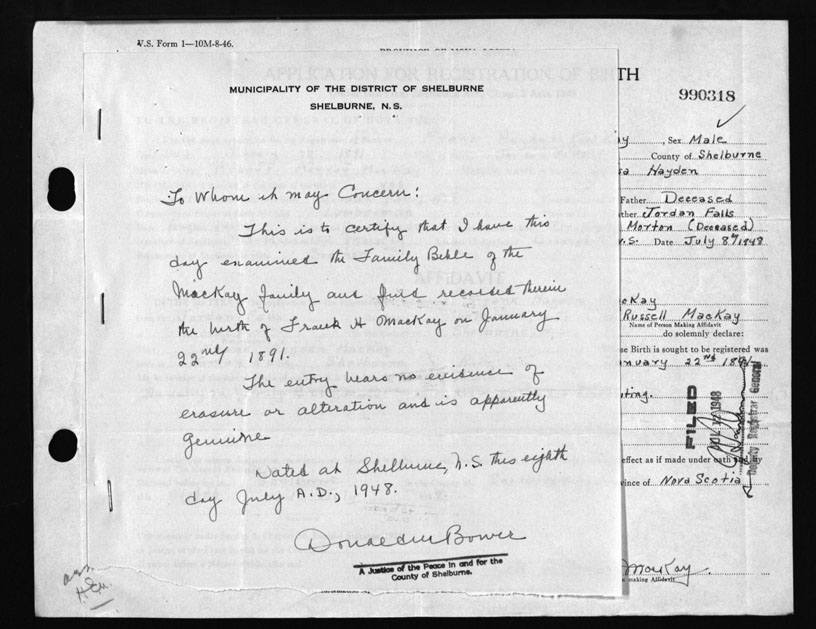 V.S. Form 1—10M-8-46.
TH
990318
MUNICIPALITY OF THE DISTRICT OF SHELBURNE
SHELBURNE, N. S.
To Whom it may Concern:
This is to certify that I have this
day examined the Family Bible of the
MacKay family and find recorded therein
the birth of Frank H MacKay on January
22nd 1891.
The entry bears no evidence of
erasure or alteration and is apparently
genuine
Dated at Shelburne, N.S. this eighth
day July A.D., 1948.
A Justice of the Peace in and for the
County of Shelburne.
y, Sex Male
County of Shelburne
Hayden
Father Deceased
ther Jordan Falls
Morton (Deceased)
.S. Date July 8th 1948
cKay
Russell MacKay
Name of Person Making Affidavit
do solemnly declare:
se Birth is sought to be registered was
nuary 22nd 1891
ting.
FILED
1948
Deputy Registrar General
effect as if made under oath and by
vince of Nova Scotia
MacKay.
making Affidavit